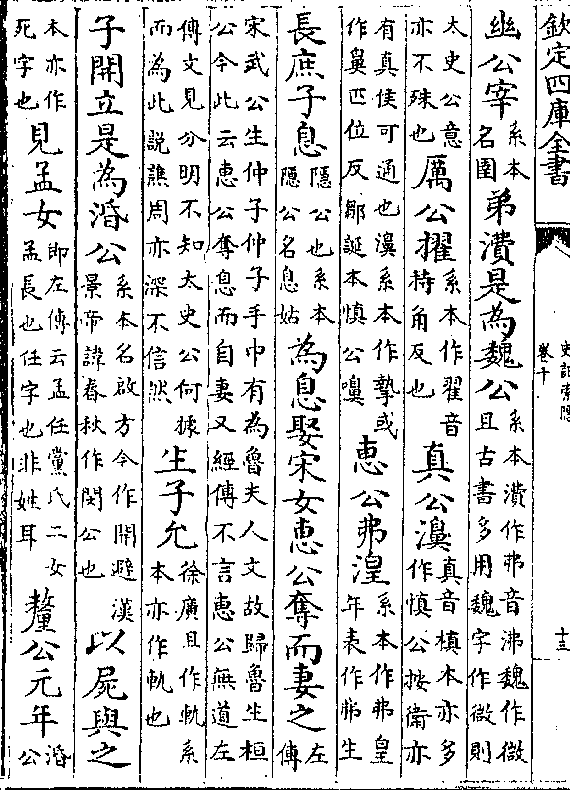 欽定四庫全書
史記索隱
卷十
十三
幽公宰系本名圉弟潰是為魏公系本潰作弗音沸魏作微且古書多用魏字作微則
太史公意亦不殊也厲公擢系本作翟音持角反也真公濞真音槙本亦多作慎公按衛亦
有真侯可通也濞系本作摯或作鼻匹位反鄒誕本慎公嚊惠公弗湟系本作弗皇年表作弗生
長庶子息隱公也系本隱公名息姑為息娶宋女惠公奪而妻之左傳
宋武公生仲子仲子手中有為魯夫人文故歸魯生桓公今此云惠公奪息而自妻又經傳不言惠公無道左
傳文見分明不知太史公何據而為此說譙周亦深不信然生子允徐廣曰作軌系本亦作軌也
子開立是為湣公系本名啟方今作開避漢景帝諱春秋作閔公也以屍與之
本亦作死字也見孟女即左傳云孟任黨氏二女孟長也任字也非姓耳釐公元年湣公